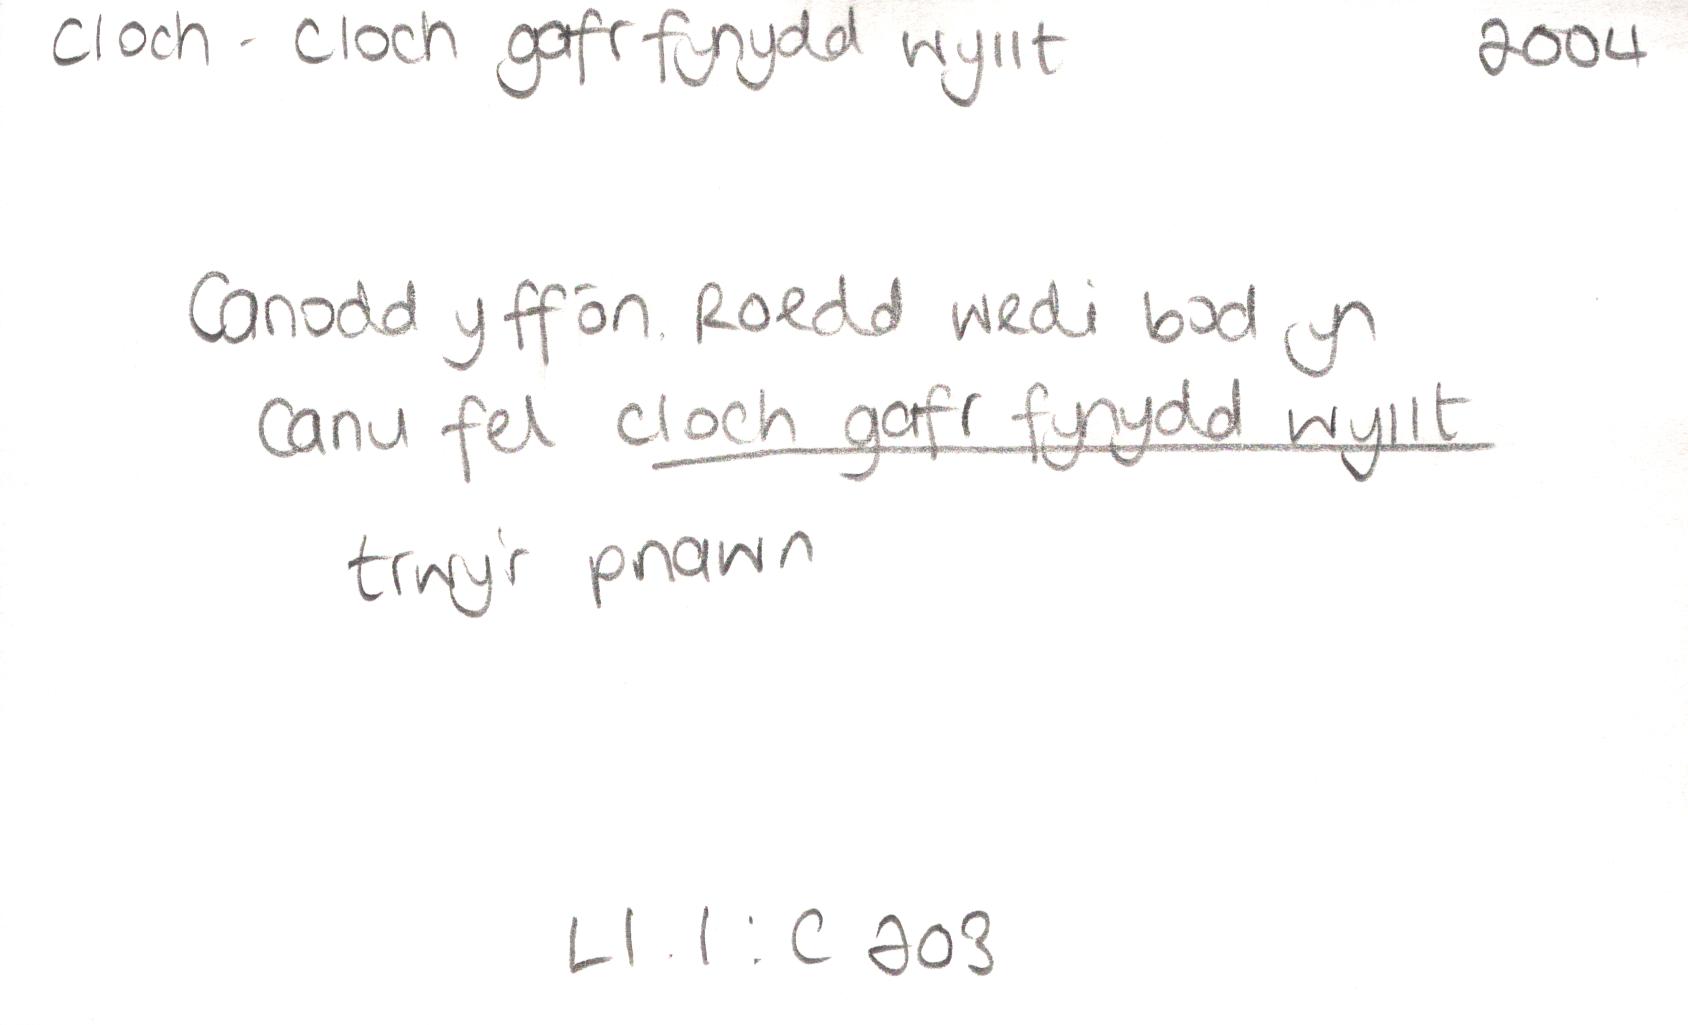 cloch - cloch gafr fynydd wyllt 2004
Canodd y ffôn. Roedd wedi bod yn
canu fel cloch gafr fynydd wyllt
trwy'r pnawn
Ll. l : C 203